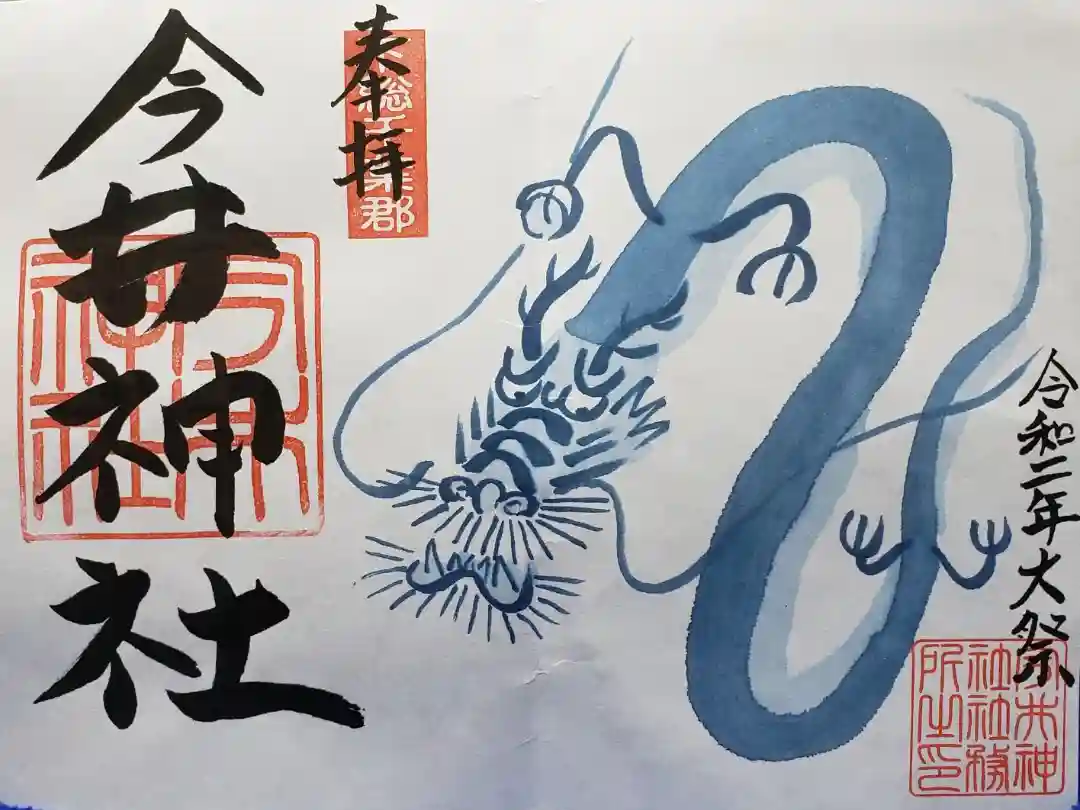 令和二年大祭
今井神
社社務
所之印
奉拝
下総千葉郡
今井神社
今井
神社